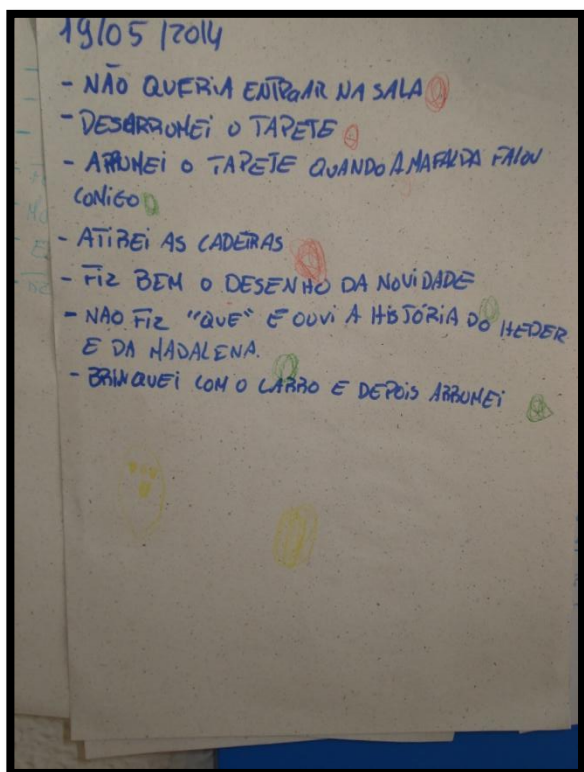 19/05/2014
- NÃO QUERIA ENTRAR NA SALA
- DESARRUMEI O TAPETE
- ARRUMEI O TAPETE QUANDO A MAFALDA FALOU
COMIGO
- ATIREI AS CADEIRAS
- FIZ BEM O DESENHO DA NOVIDADE
- NÃO FIZ "QUE" E OUVI A HISTÓRIA DO HEDER
E DA MADALENA.
- BRINQUEI COM O CARRO E DEPOIS ARRUMEI